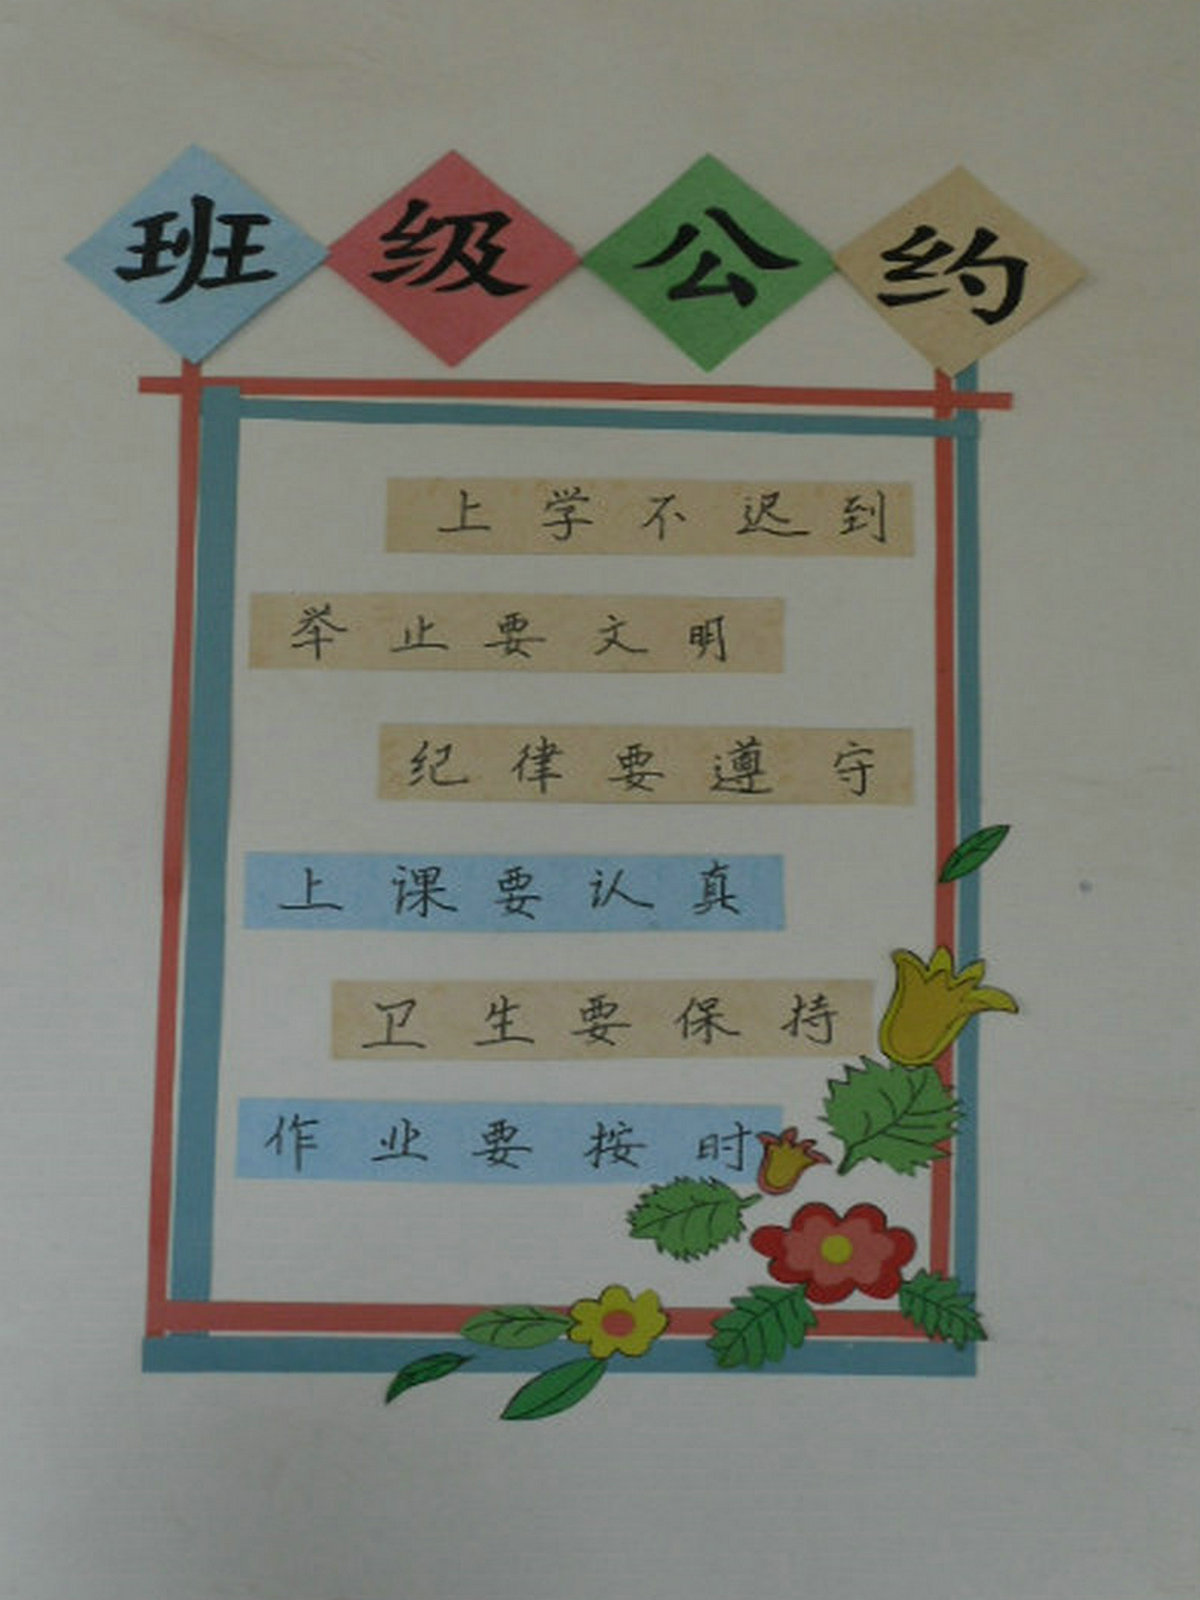 班级公约
上学不迟到
举止要文明
纪律要遵守
上课要认真
卫生要保持
作业要按时